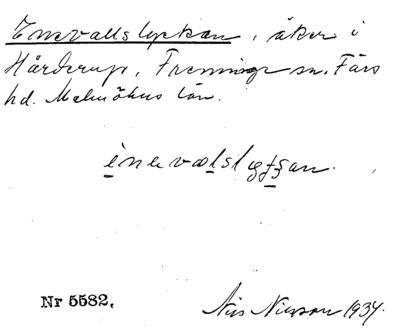 Enevallslyckan, åker i
Hårderup, Fränninge sn. Färs
hd. Malmöhus län.
Nr 5582.
Nils Nilsson 1934.